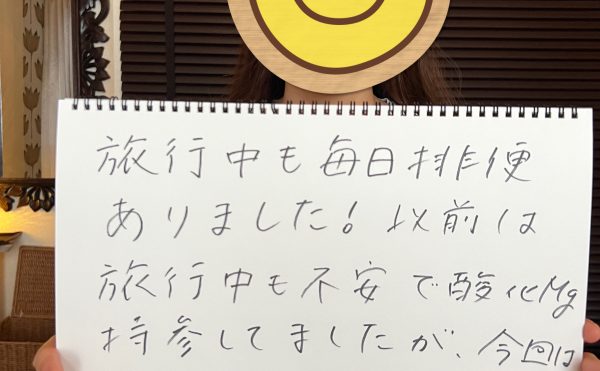 旅行中も毎日排便
ありました！以前は
旅行中も不安で酸化Mg
持参してましたが、今回は